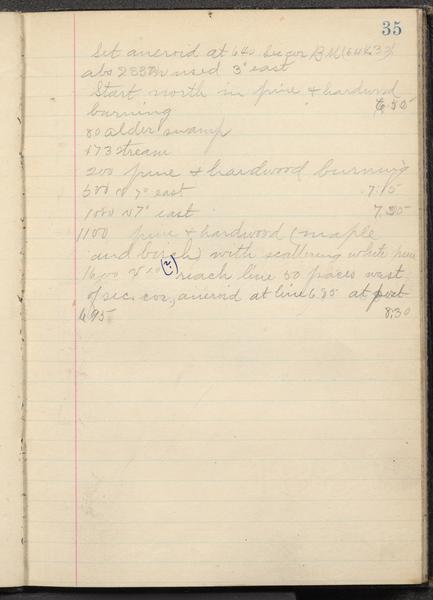 35
Set aneroid at 640 Sec cor B.M. (644.33)
used 3° east
Start north in pine & hardwood
burning 6.50
80 alder swamp
173 stream
200 pine & hardwood burning
500 N 7° east 7.15
1000 N 7° east
1100 pine & hardwood (maple
and birch) with scattering white pine
1600 (?) reach line 50 paces west
of sec. cor., aneroid at line 685 at post
695 8.30